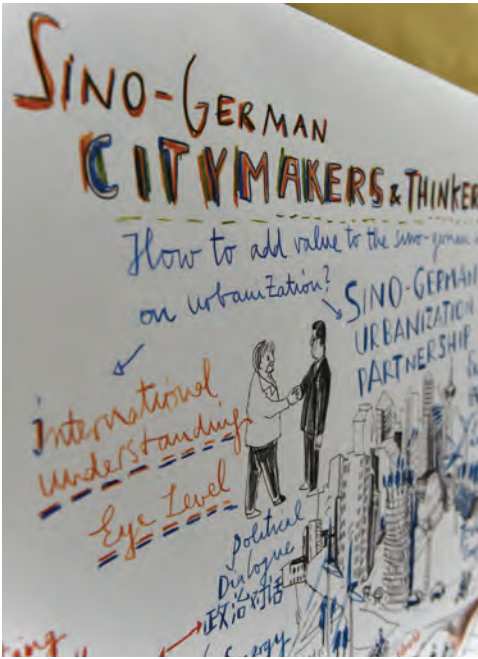 SINO-GERMAN
CITYMAKERS & THINKER
How to add value to the sino-german
on urbanization?
SINO-GERMAN
URBANIZATION
PARTNERSHIP
international
understanding
Eye Level
political
Dialogue
政治对话
Energy